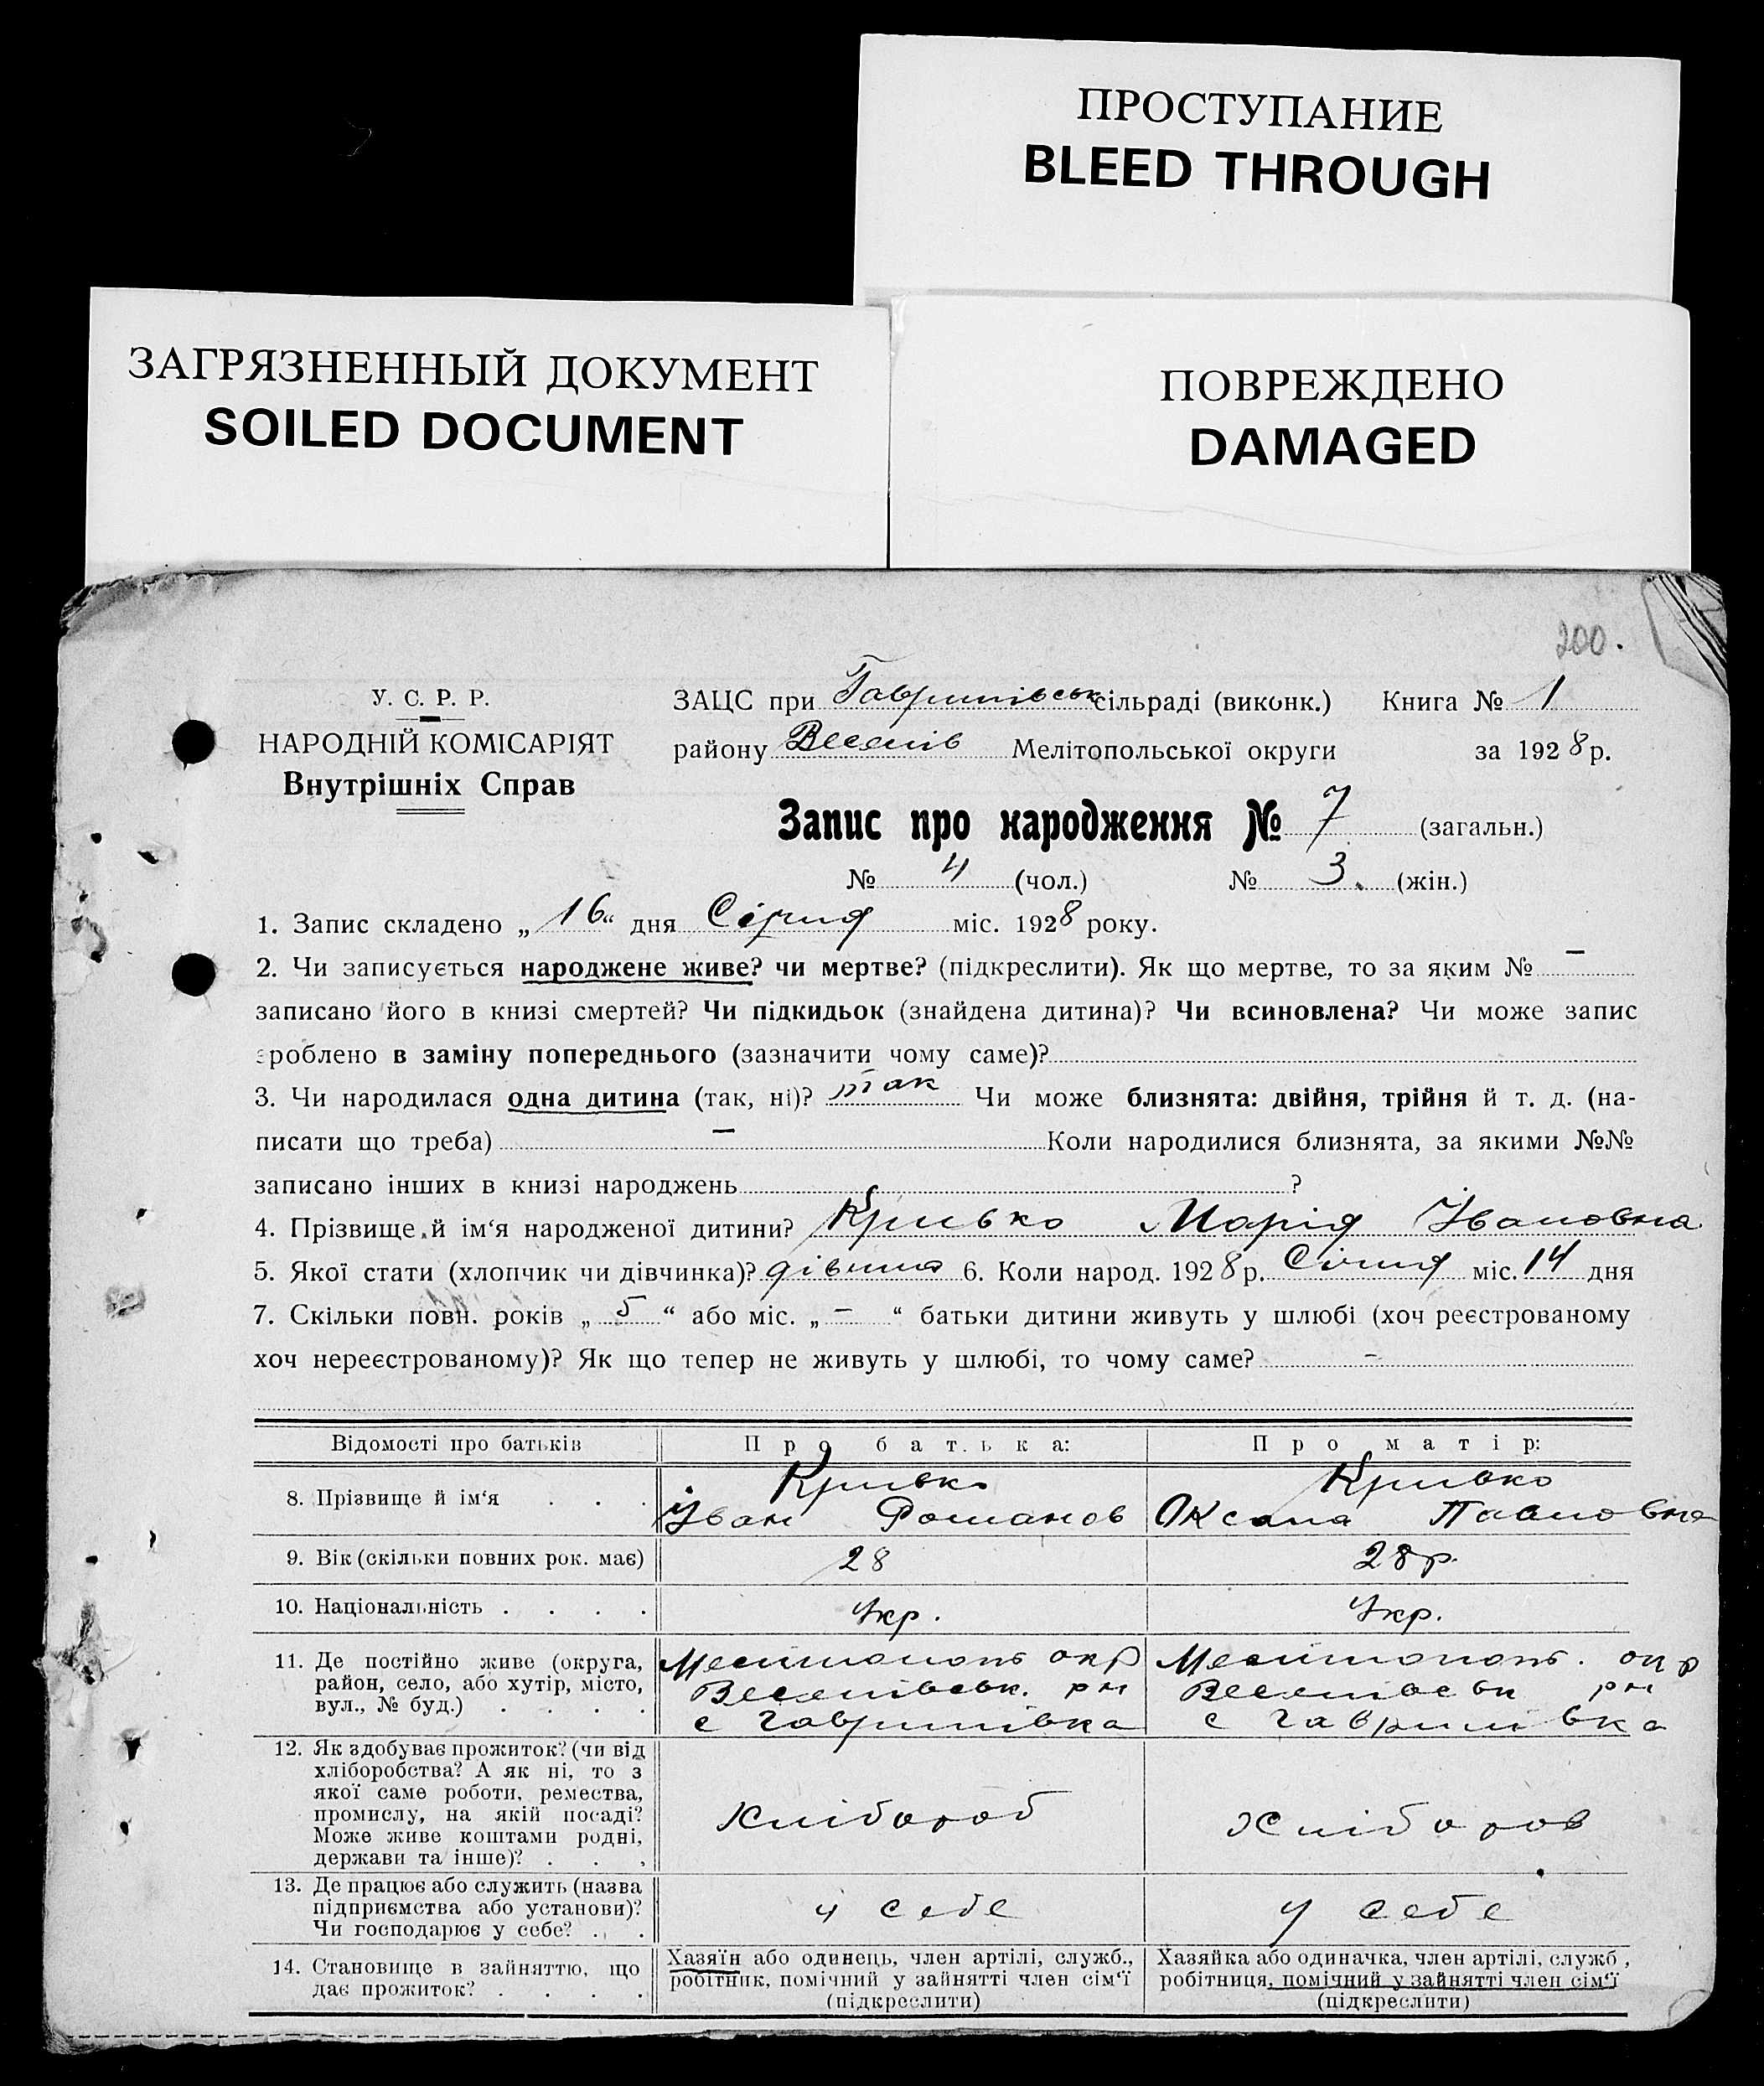 ПРОСТУПАНИЕ
BLEED THROUGH
ЗАГРЯЗНЕННЫЙ ДОКУМЕНТ
SOILED DOCUMENT
ПОВРЕЖДЕНО
DAMAGED
200.
У. С. Р. Р.
НАРОДНІЙ КОМІСАРІЯТ
Внутрішніх Справ
ЗАЦС при Гаврилівськ сільраді (виконк.) Книга № 1
району Веселів Мелітопольської округи за 1928 р.
Запис про народження № 7 (загальн.)
№ 4 (чол.) № 3. (жін.)
1. Запис складено „16“ дня Січня міс. 1928 року.
2. Чи записується народжене живе? чи мертве? (підкреслити). Як що мертве, то за яким № –
записано його в книзі смертей? Чи підкидьок (знайдена дитина)? Чи всиновлена? Чи може запис
зроблено в заміну попереднього (зазначити чому саме)?
3. Чи народилася одна дитина (так, ні)? так Чи може близнята: двійня, трійня й т. д. (на-
писати що треба) – Коли народилися близнята, за якими №№
записано інших в книзі народжень ?
4. Прізвище й ім‘я народженої дитини? Кривко Марія Івановна
5. Якої стати (хлопчик чи дівчинка)? дівчина 6. Коли народ. 1928 р. Січня міс. 14 дня
7. Скільки повн. років „ 5 “ або міс. „ – “ батьки дитини живуть у шлюбі (хоч реєстрованому
хоч нереєстрованому)? Як що тепер не живуть у шлюбі, то чому саме? –
Відомості про батьків
Про батька:
Про матір:
8. Прізвище й ім‘я . . .
Кривко
Іван Романов
Кривко
Оксана Павловна
9. Вік (скільки повних рок. має)
28
28 р.
10. Національність . . . .
Укр.
Укр.
11. Де постійно живе (округа,
район, село, або хутір, місто,
вул., № буд.) . . . .
Мелитополь окр
Веселівськ. рн
с Гаврилівка
Мелитополь. окр
Веселівськ рн
с Гаврилівка
12. Як здобуває прожиток? (чи від
хліборобства? А як ні, то з
якої саме роботи, ремества,
промислу, на якій посаді?
Може живе коштами родні,
держави та інше)? . . .
Хлібороб
Хлібороб
13. Де працює або служить (назва
підприємства або установи)?
Чи господарює у себе? . .
у себе
у себе
14. Становище в зайняттю, що
дає прожиток? . . . .
Хазяїн або одинець, член артілі, служб.,
робітник, помічний у зайнятті член сім‘ї
(підкреслити)
Хазяйка або одиначка, член артілі, служб,
робітниця, помічний у зайнятті член сім‘ї
(підкреслити)